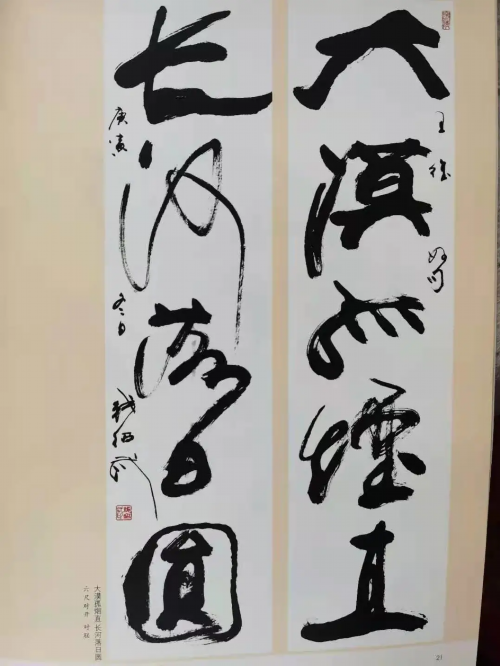 大漠孤煙直
王維
长河落日圓
庚寅
冬日
钱绍武
大漠孤烟直 长河落日圆
六尺对开 对联
21